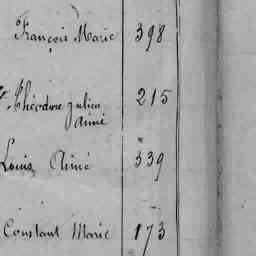 François Marie 398
Théodore Julien 215
Aimé
Louis Aimé 339
Constant Marie 173